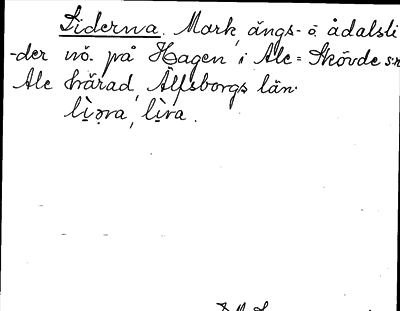 Liderna. Mark, ängs- o ådalsli
-der nö. på Hagen i Ale-Skövde s:n
Ale härad, Älfsborgs län.
lı̀ə̣ra, lı̀ra.